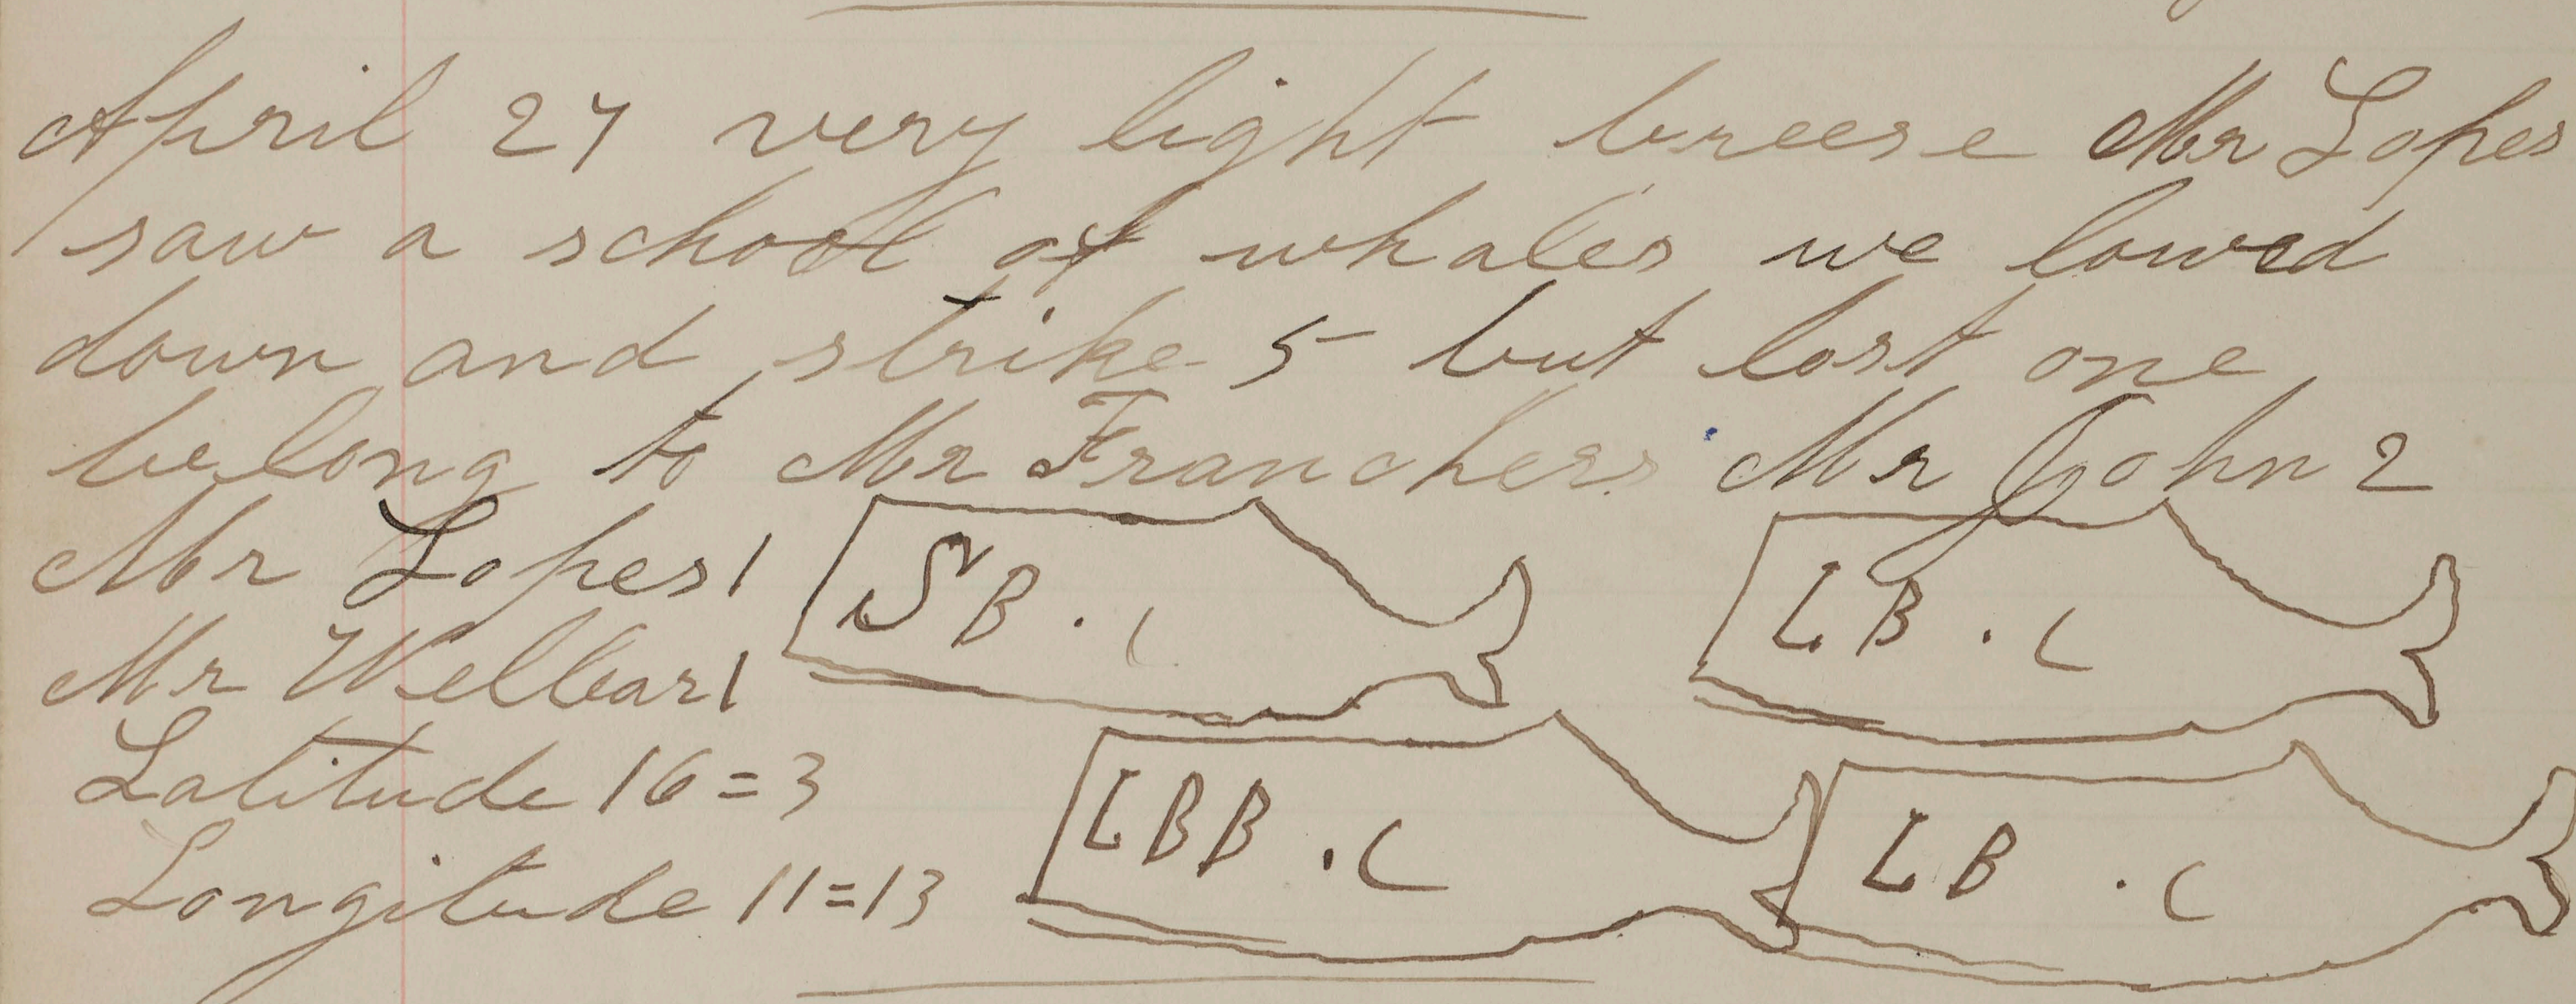 April 27 very light breese Mr Lopes
saw a school of whales we lowed
down and strike 5 but lost one
belong to Mr Franchers Mr John 2
Mr Lopes 1
Mr Wellbar 1
Latitude 16=3
Longitude 11=13
SB.
LB.
LBB.
LB.